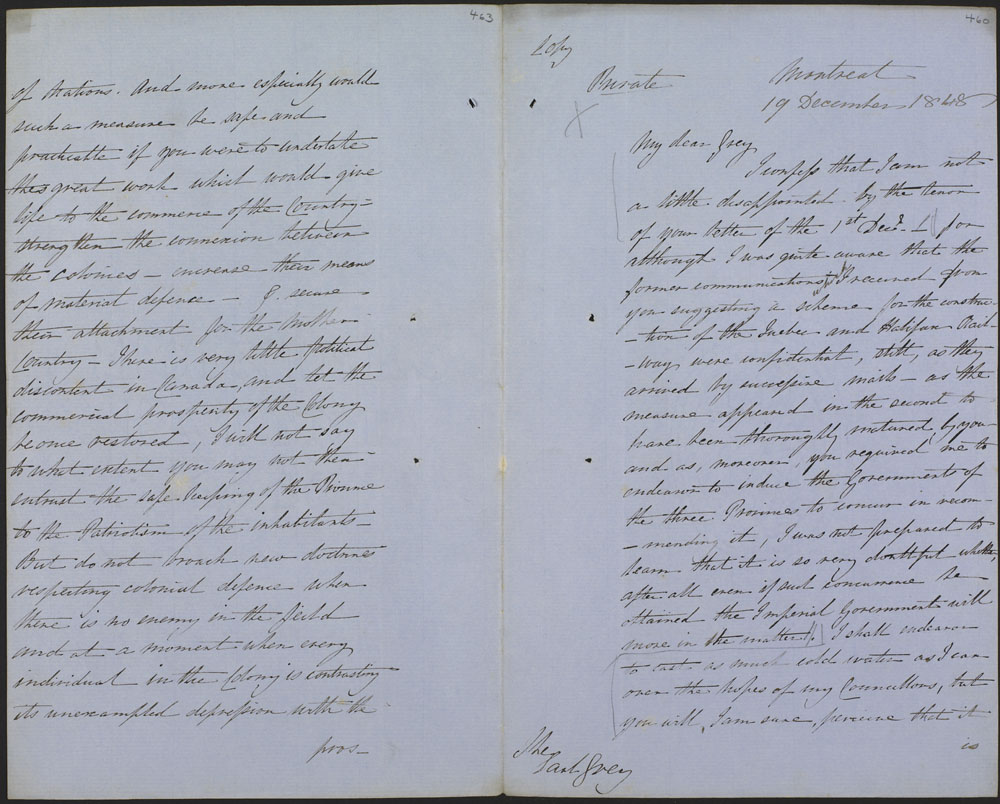 463
of stations. And more especially would
such a measure be safe and
practicable if you were to undertake
this great work which would give
life to the commerce of the Country -
strengthen the connexion between
the colonies - increase their means
of material defence - & secure
their attachment for the Mother
Country - There is very little Political
discontent in Canada, and let the
commercial prosperity of the Colony
become restored, I will not say
to what extent you may not then
entrust the safe keeping of the Province
to the Patriotism of the inhabitants -
But do not broach new doctrines
respecting colonial defence when
there is no enemy in the field
and at a moment when every
individual in the Colony is contrasting
its unexampled depression with the
pros-
460
Copy
Private
Montreal
19 December 1848
My dear Grey
I confess that I am not
a little disappointed by the tenor
of your letter of the 1st Decr. - for
although I was quite aware that the
former communications I received from
you suggesting a scheme for the construc
-tion of the Quebec and Halifax Rail
-way were confidential, still, as they
arrived by successive mails - as the
measure appeared in the second to
have been thoroughly matured by you
and as, moreover, you required me to
endeavor to induce the Governments of
the three Provinces to concur in recom-
-mending it, I was not prepared to
learn that it is so very doubtful whether,
after all even if such concurrence be
obtained the Imperial Government will
move in the matter. I shall endeavor
to cast as much cold water as I can
over the hopes of my Councillors, but
you will, I am sure, perceive that it
is
The
Earl Grey